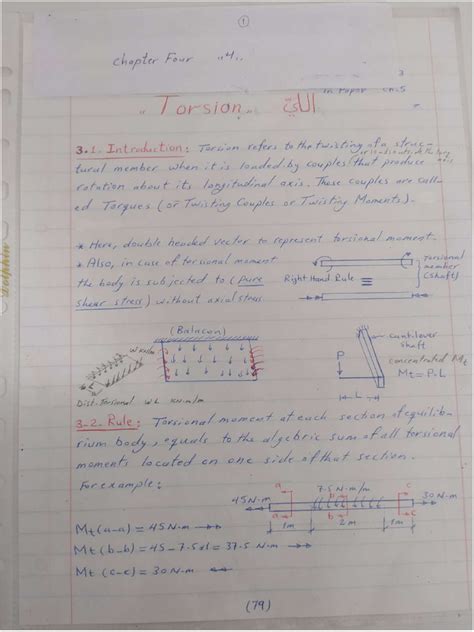 1
Chapter Four "4"
3
in Paper Ch.5
" Torsion " اللي
3.1. Introduction: Torsion refers to the twisting of a struc-
tural member when it is loaded by couples that produce
rotation about its longitudinal axis. These couples are call-
ed Torques (or Twisting Couples or Twisting Moments).
* Here, double headed vector to represent torsional moment.
* Also, in case of torsional moment
the body is subjected to (pure
shear stress) without axial stress
Right Hand Rule ≡
Torsional
member
(shaft).
(Balacon)
w kN/m
Dist. Torsional WL KN.m/m
P
L
cantilever
shaft
concentrated Mt
Mt = P.L
3-2. Rule: Torsional moment at each section of equilib-
rium body, equals to the algebric sum of all torsional
moments located on one side of that section.
For example:
45 N.m a 7.5 N.m/m b c 30 N.m
a b c
1m 2m 1m
Mt (a-a) = 45 N.m
Mt (b-b) = 45 - 7.5x1 = 37.5 N.m
Mt (c-c) = 30 N.m
(79)
Dolphin